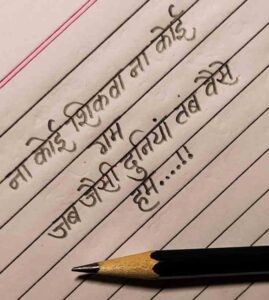 ना कोई शिकवा ना कोई
गम
जब जैसी दुनियां तब वैसे
हम.....!!